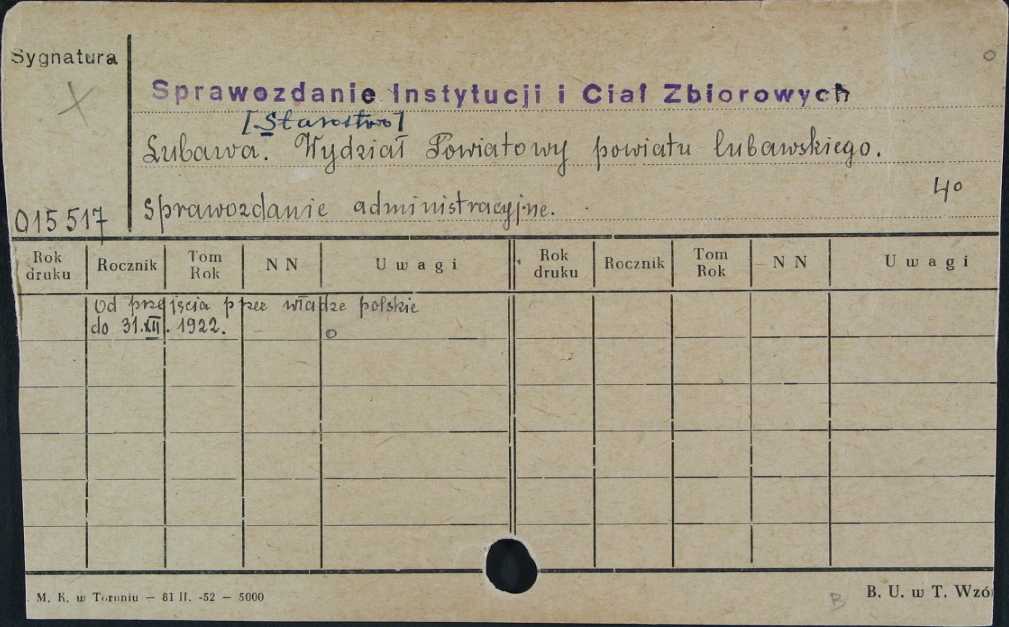 Sygnatura
X
Sprawozdanie Instytucji i Ciał Zbiorowych
[Starostwo]
Lubawa. Wydział Powiatowy powiatu lubawskiego.
4o
Sprawozdanie administracyjne.
015517
Rok druku Rocznik Tom Rok NN Uwagi Rok druku Rocznik Tom Rok NN Uwagi
Od przejścia przez władze polskie
do 31.XII. 1922.
M. K. w Toruniu — 81 II. -52 — 5000
B
B. U. w T. Wzó